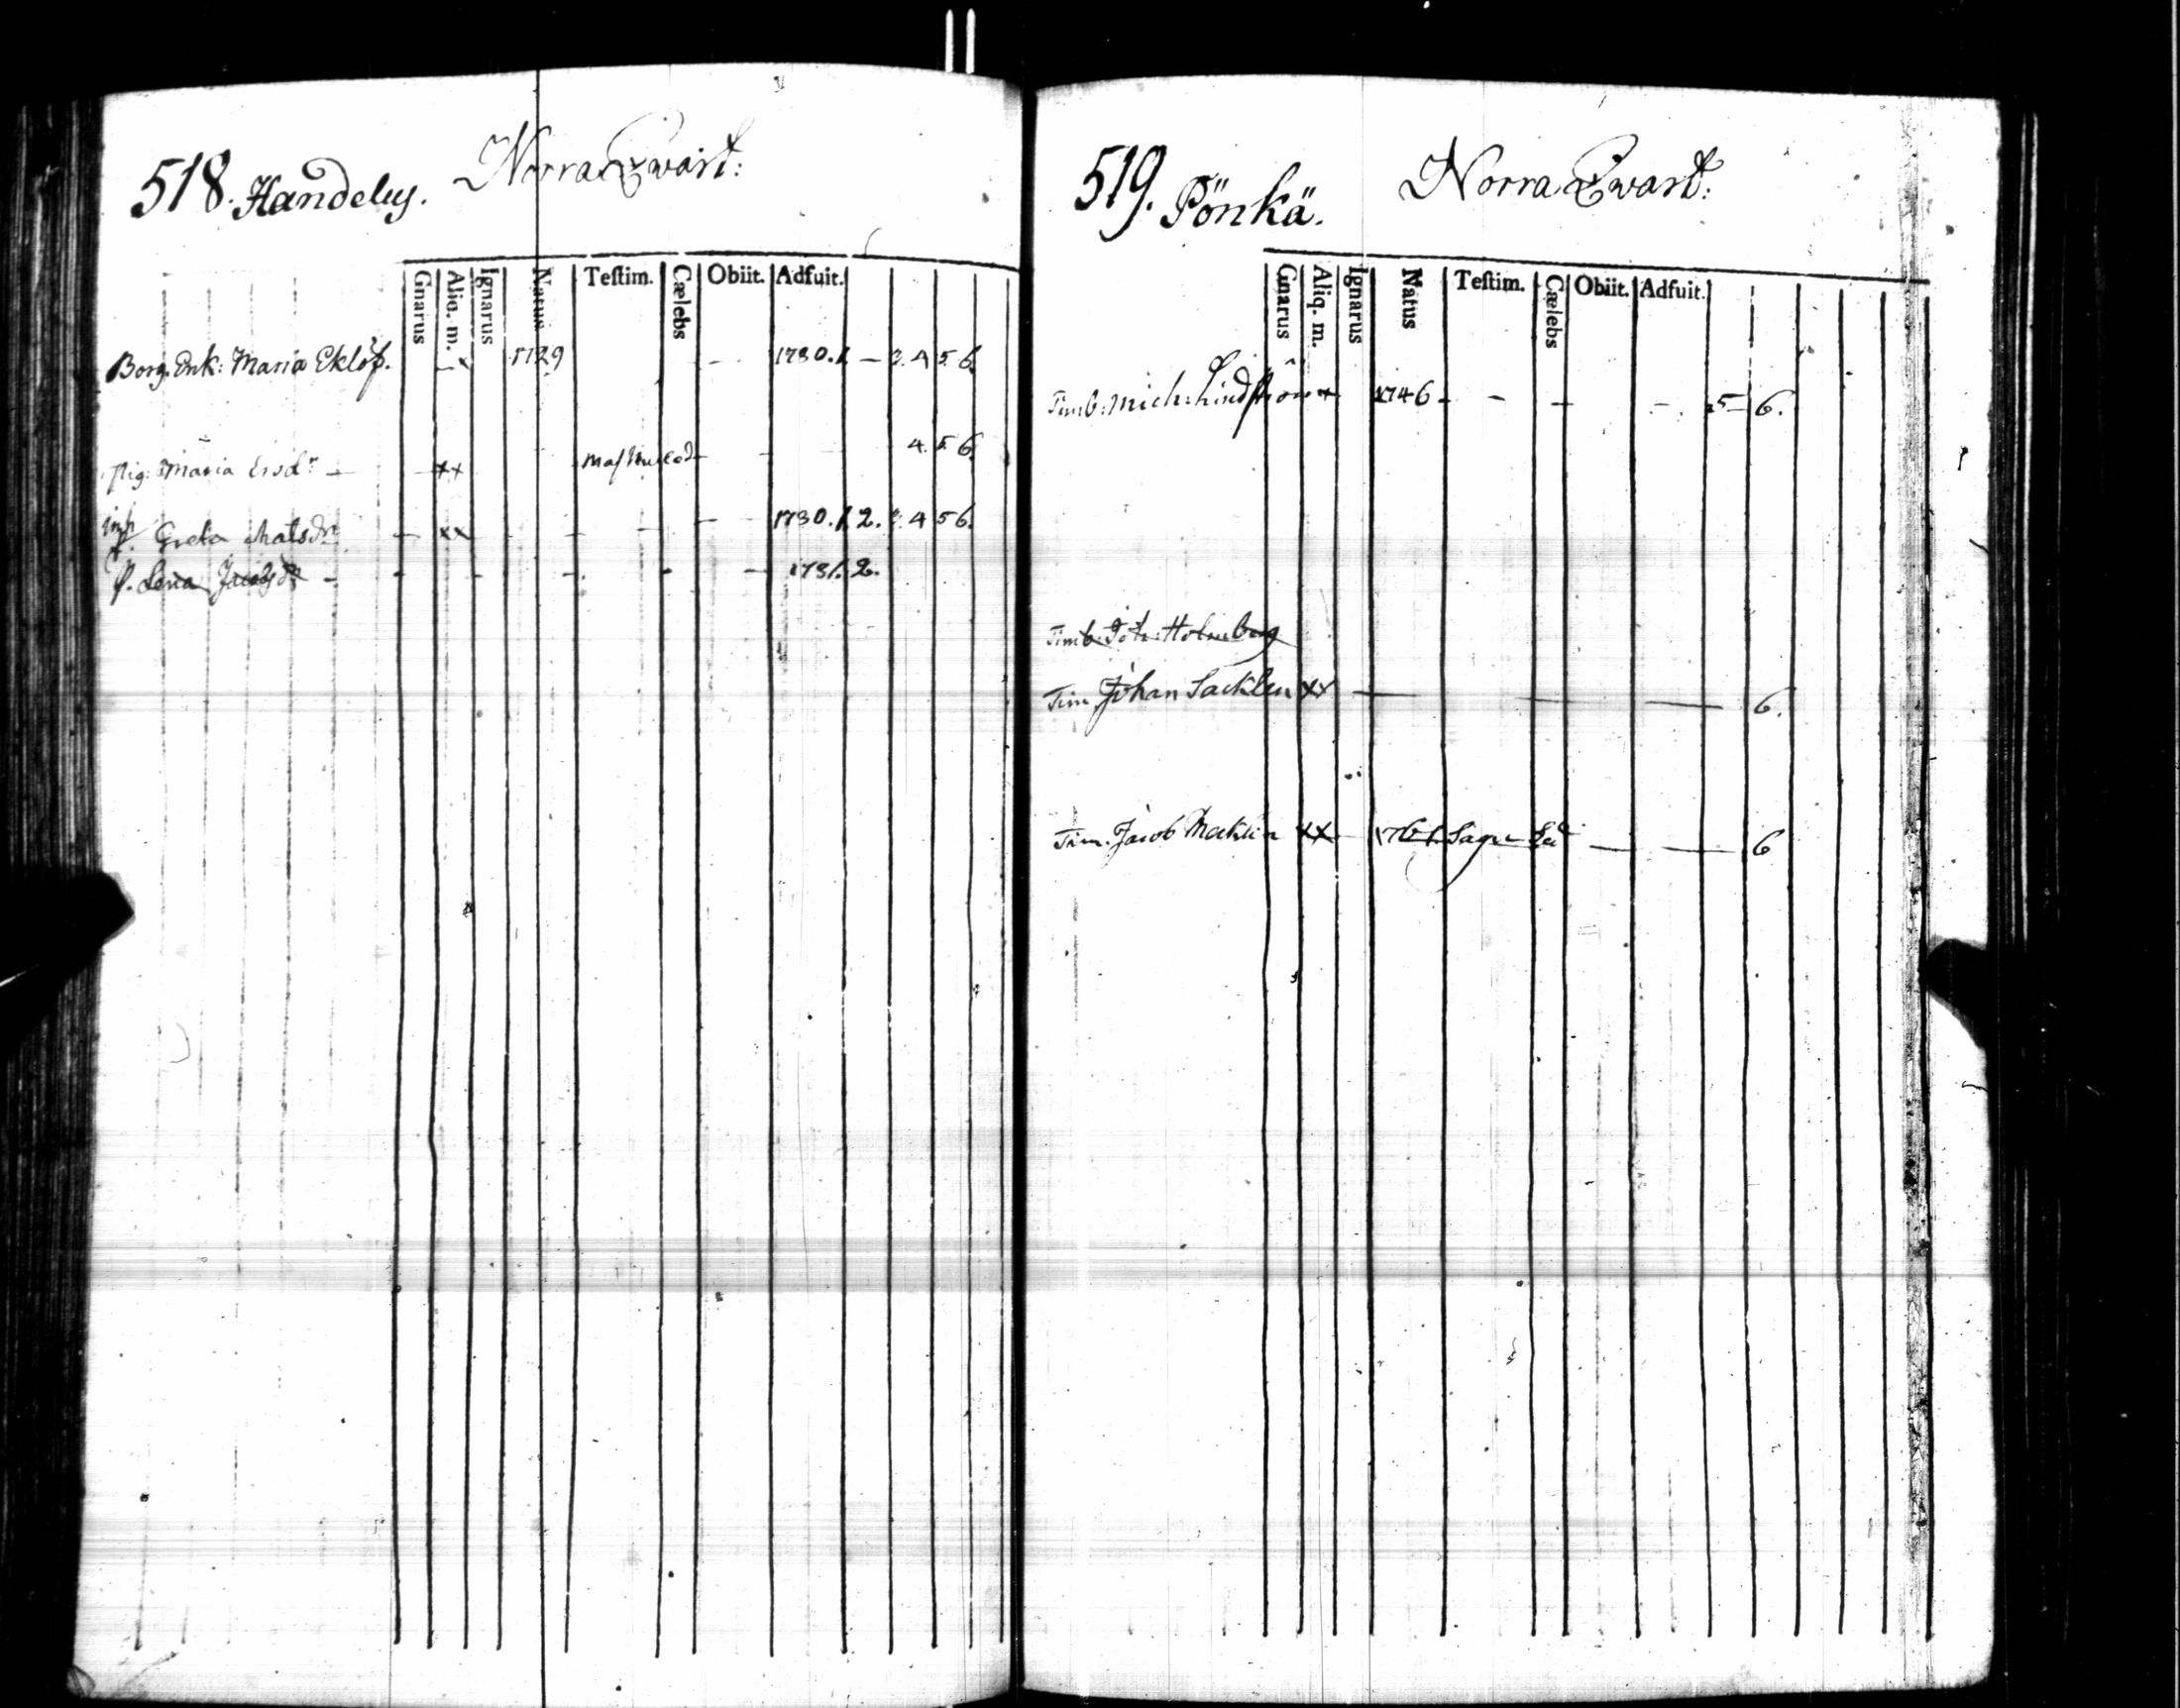 518. Handelus. Norra Qvart:
Gnarus Aliq. m. Ignarus Natus Testim. Cælebs Obiit. Adfuit.
Borg. Enk: Maria Eklöf. - x 1729 - 1780.1. - 3. 4 5 6.
Pig: Maria Ersdr - xx 4. 5 6.
inh
P. Greta Matsdr - xx - - - 1780.1.2. 3. 4 5 6.
P. Lena Jacobsdr - - - - - - 1781.2.
519. Pönkä. Norra Qvart:
Gnarus Aliq. m. Ignarus Natus Testim. Cælebs Obiit. Adfuit.
Timb: Mich: Lindström x 1746 - - - - 5 - 6.
Timb: Joh: Holmberg
Tim Johan Sacklen xx - - - 6.
Tim. Jacob Macklin xx - - - 6